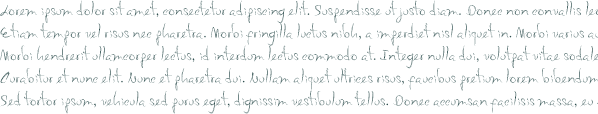 Lorem ipsum dolor sit amet, consectetur adipiscing elit. Suspendisse ut justo diam. Donec non convallis leo
Etiam tempor vel risus nec pharetra. Morbi fringilla luctus nibh, a imperdiet nisl aliquet in. Morbi varius au
Morbi hendrerit ullamcorper lectus, id interdum lectus commodo at. Integer nulla dui, volutpat vitae sodale
Curabitur et nunc elit. Nunc et pharetra dui. Nullam aliquet ultrices risus, faucibus pretium lorem bibendum
Sed tortor ipsum, vehicula sed purus eget, dignissim vestibulum tellus. Donec accumsan facilisis massa, eu